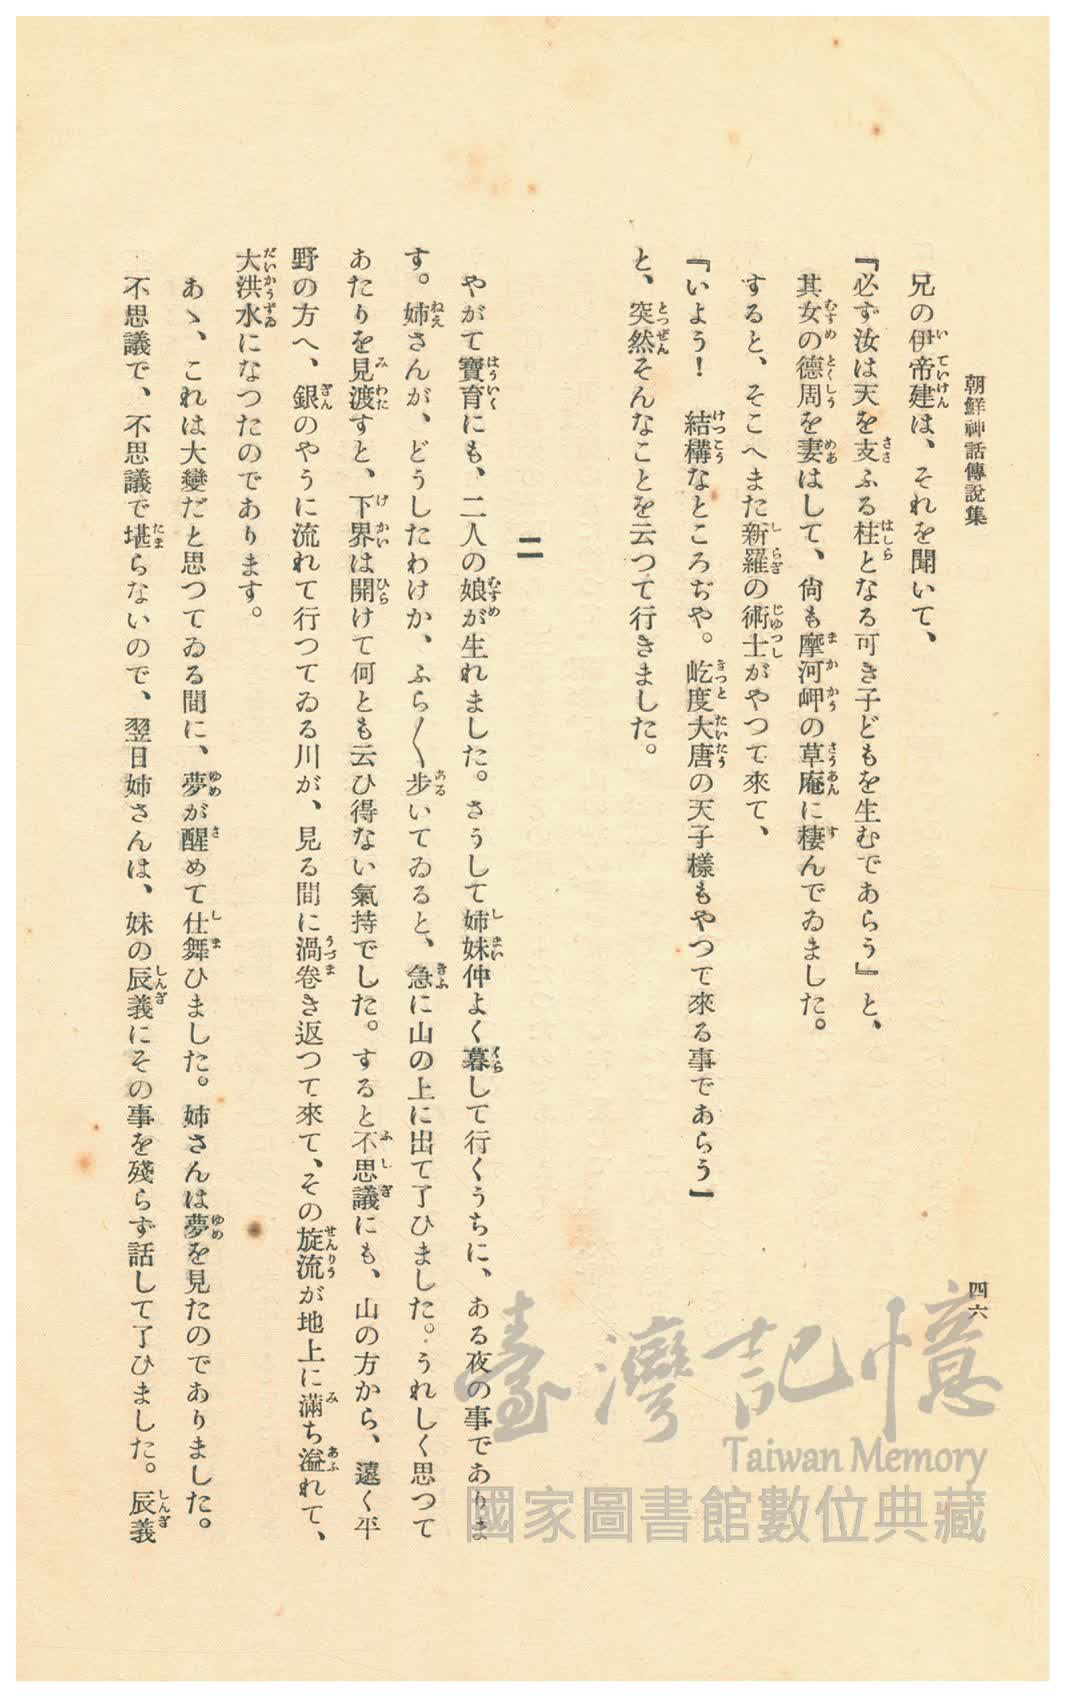 朝鮮神話傳說集
四六
兄の伊帝建は、それを聞いて、
『必ず汝は天を支ふる柱となる可き子どもを生むであらう』と、
其女の德周を妻はして、尙も摩河岬の草庵に棲んでゐました。
すると、そこへまた新羅の術士がやつて來て、
『いよう！　結構なところぢや。屹度大唐の天子樣もやつて來る事であらう』
と、突然そんなことを云つて行きました。
二
やがて寶育にも、二人の娘が生れました。さうして姉妹仲よく暮して行くうちに、ある夜の事でありま
す。姉さんが、どうしたわけか、ふら〳〵步いてゐると、急に山の上に出て了ひました。うれしく思つて
あたりを見渡すと、下界は開けて何とも云ひ得ない氣持でした。すると不思議にも、山の方から、遠く平
野の方へ、銀のやうに流れて行つてゐる川が、見る間に渦卷き返つて來て、その旋流が地上に滿ち溢れて、
大洪水になつたのであります。
あゝ、これは大變だと思つてゐる間に、夢が醒めて仕舞ひました。姉さんは夢を見たのでありました。
不思議で、不思議で堪らないので、翌日姉さんは、妹の辰義にその事を殘らず話して了ひました。辰義
臺灣記憶
Taiwan Memory
國家圖書館數位典藏